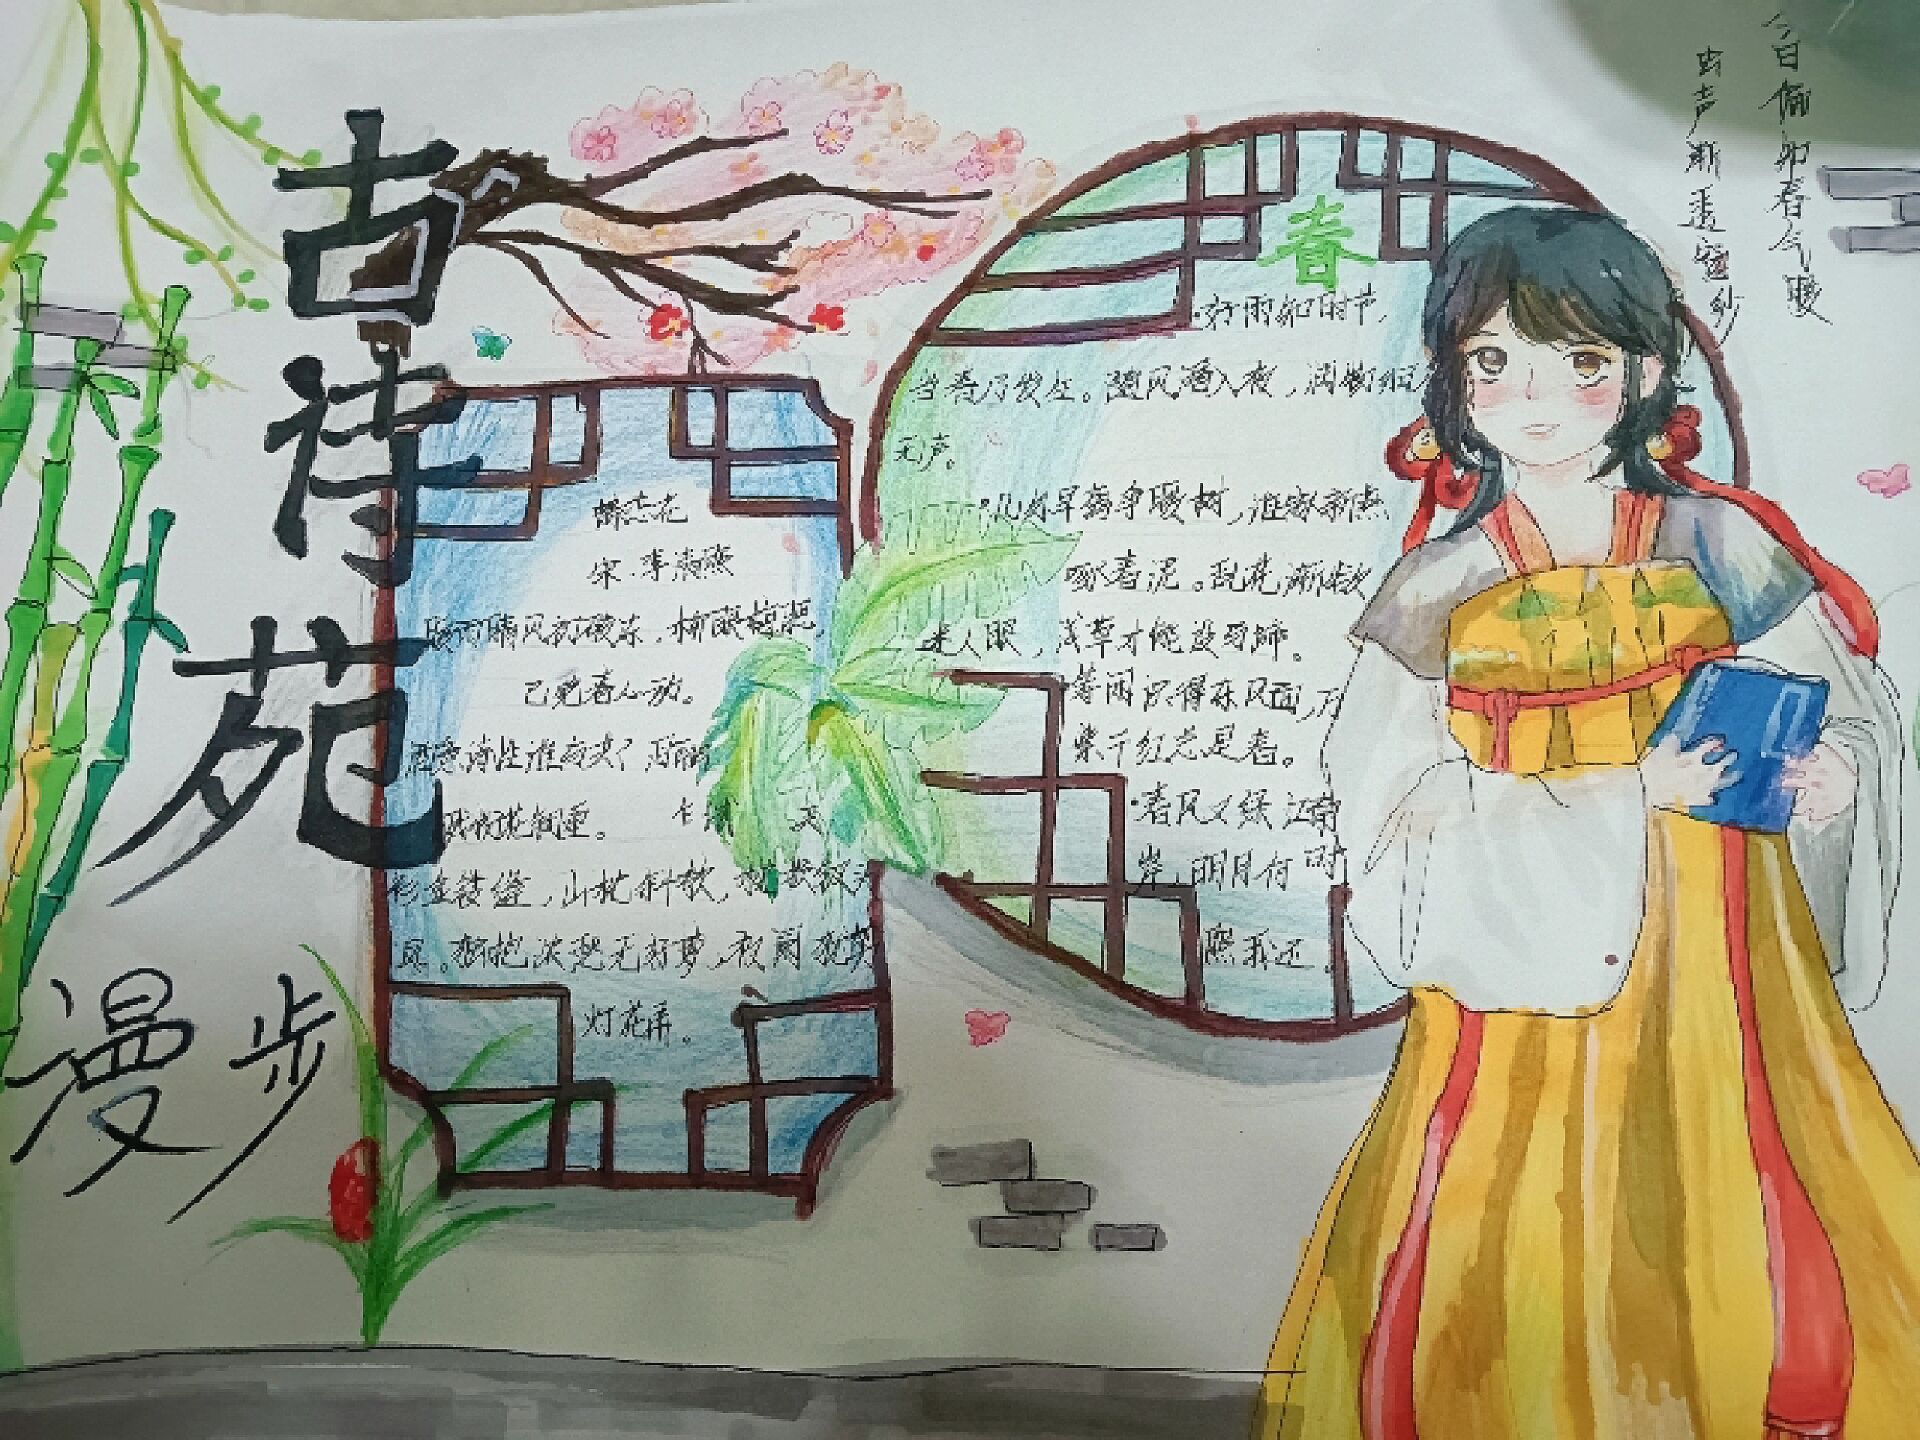 古诗苑
漫步
蝶恋花
宋.李清照
暖雨晴风初破冻，柳眼梅腮，
已觉春心动。
酒意诗情谁与共？泪融
残粉花钿重。乍试 夹
衫金缕缝，山枕斜欹，枕损钗头
凤。独抱浓愁无好梦，夜阑犹剪
灯花弄。
春
·好雨知时节，
当春乃发生。随风潜入夜，润物细
无声。
几处早莺争暖树，谁家新燕
啄春泥。乱花渐欲
迷人眼，浅草才能没马蹄。
等闲识得东风面，万
紫千红总是春。
·春风又绿江南
岸，明月何时
照我还。
今日偏知春气暖
虫声新透绿窗纱